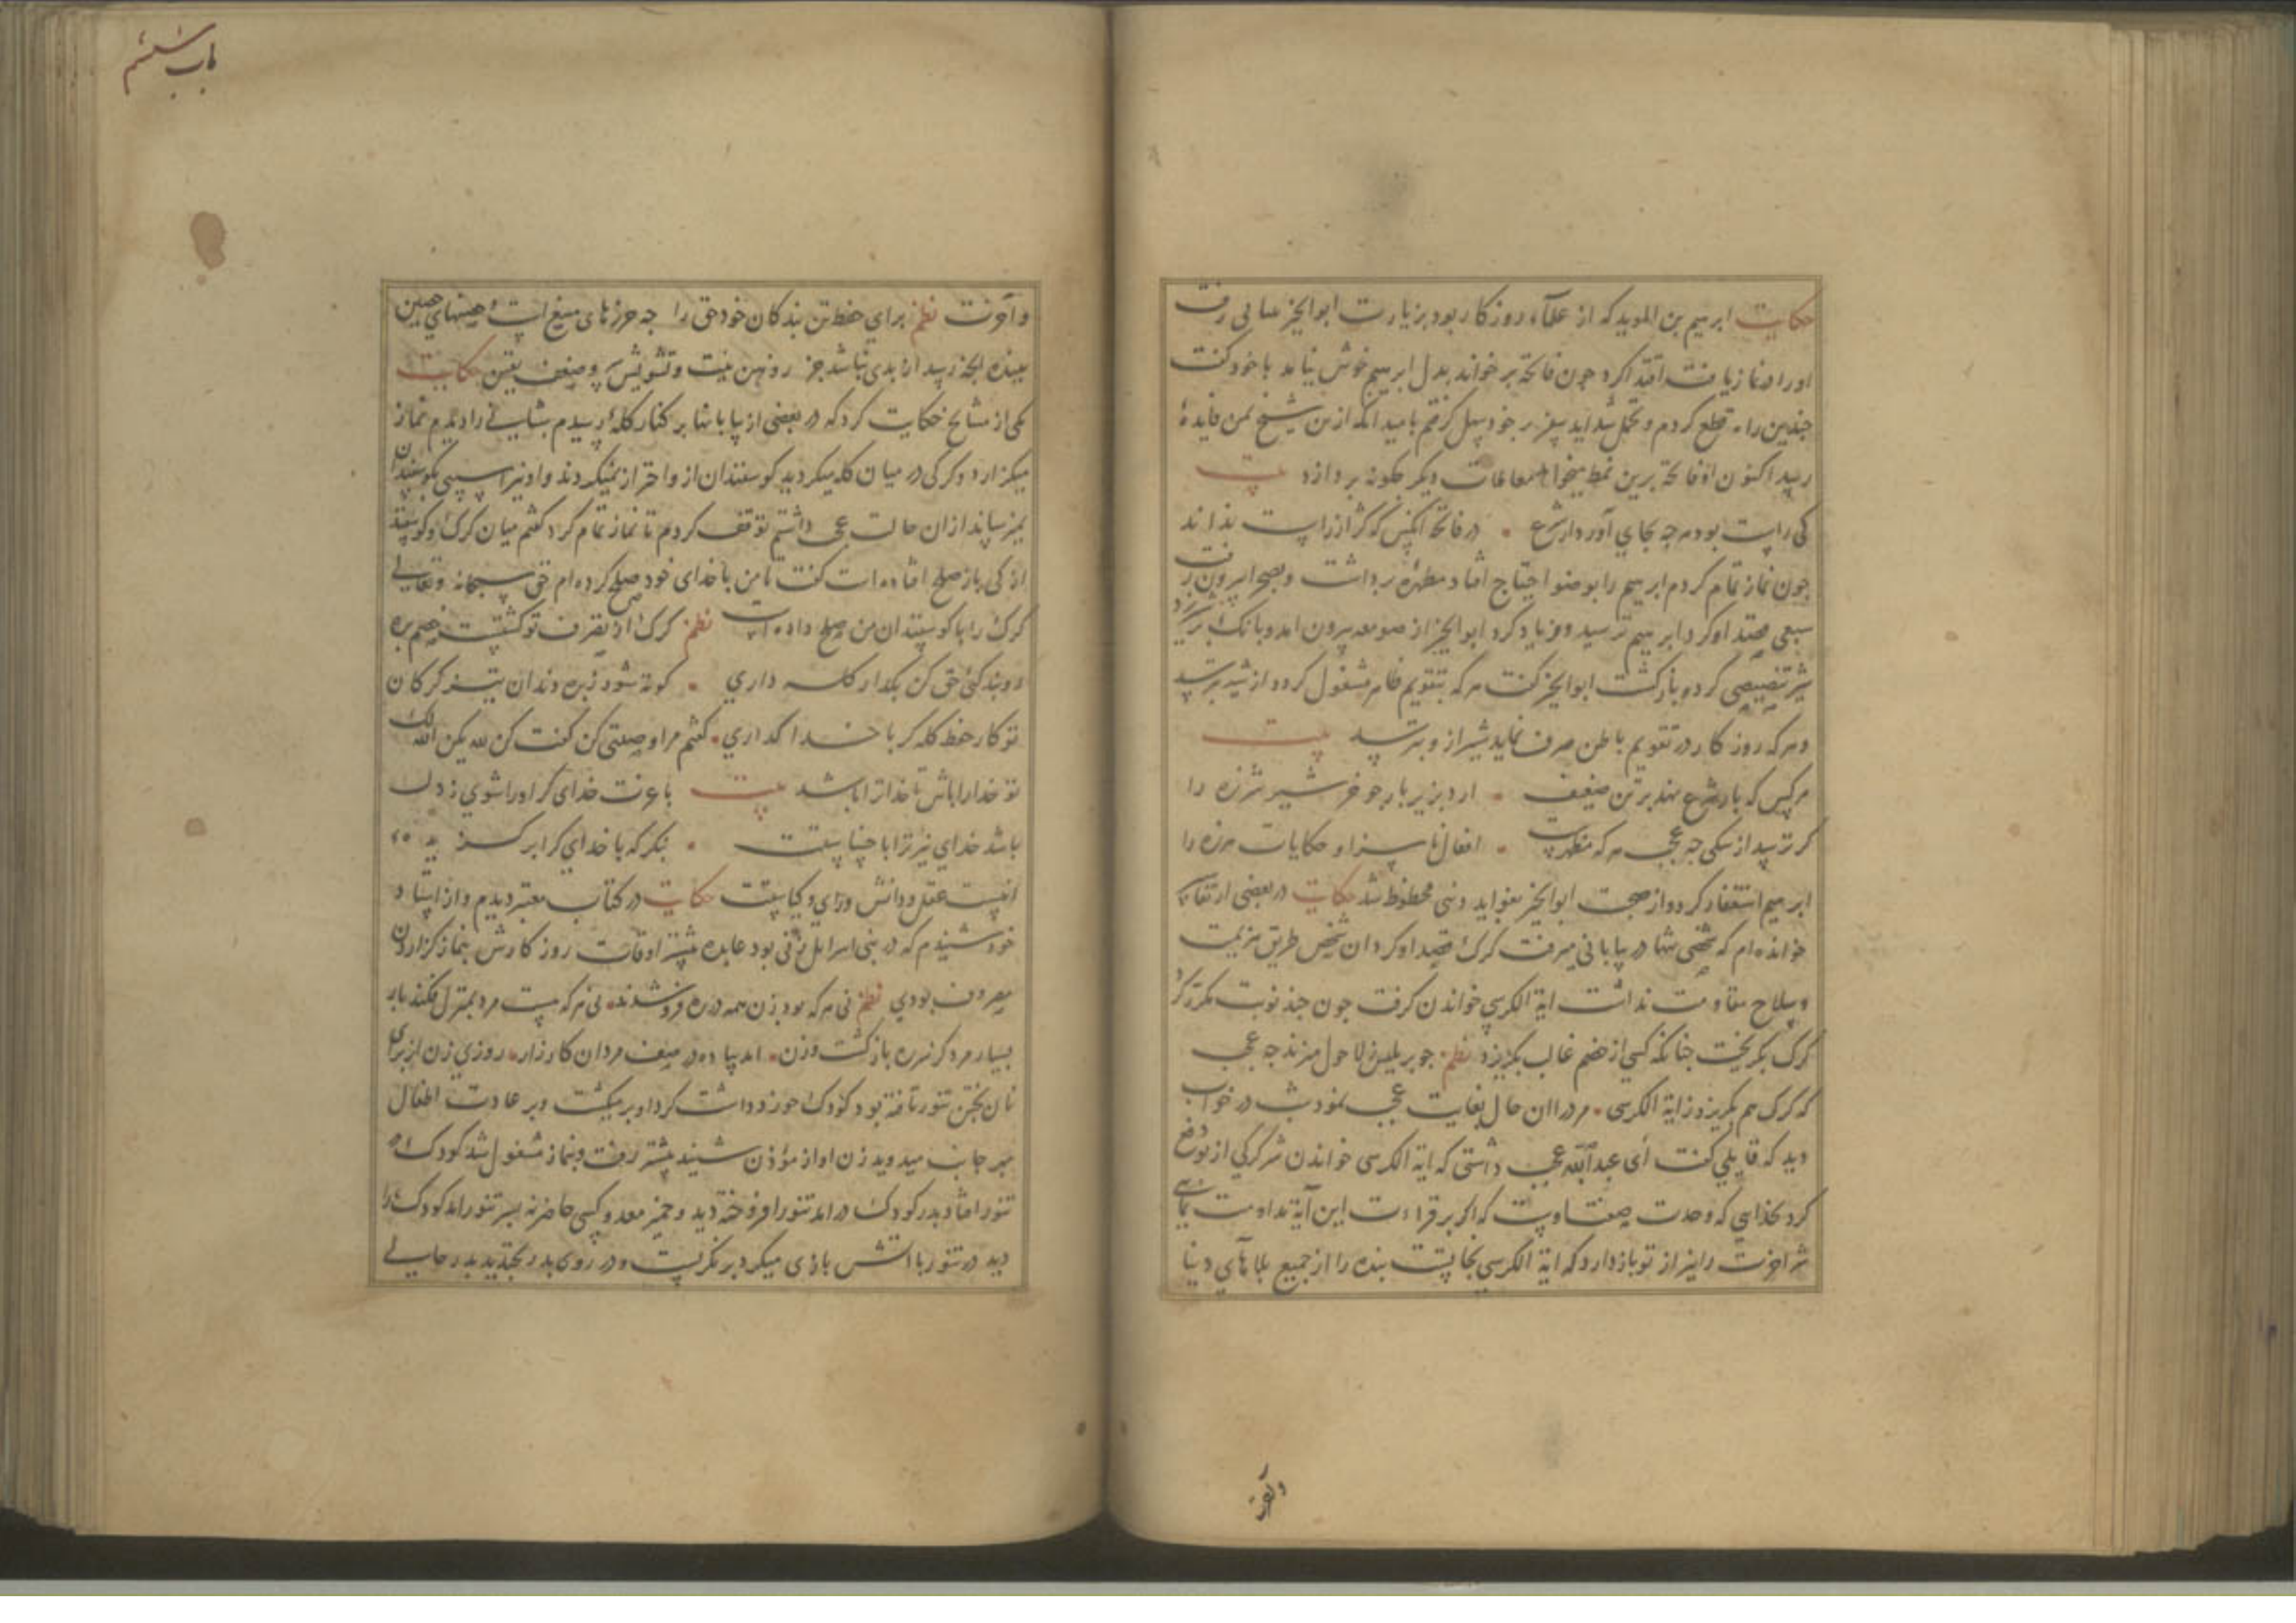 حکایت ابرهیم بن الموید که از علماء روزکار بود بزیارت ابوالخیر رفت
اورا در نماز یافت اقتدا کرد چون فاتحه بر خواند بدل ابرهیم خوش نیامد با خود کفت
چندین راه قطع کردم و تحمل شداید سفر بر خود سهل کرفتم بامید انکه ازین شیخ بمن فایدهٔ
رسد اکنون او فاتحه برین نمط میخواند معاملات دیکر چکونه پردازد بیت
کی راست بود هرچه بجای آورد از شرع • در فاتحه انکس که کژ از راست نداند
چون نماز تمام کردم ابرهیم را بوضو احتیاج افتاد مطهره برداشت و بصحرا بیرون رفت
سبعی قصد او کرد ابرهیم ترسید و فریاد کرد ابوالخیر از صومعه بیرون امد و بانک بر شیر زد
شیر کرد و بازکشت ابوالخیر کفت هرکه بتقویم ظاهر مشغول کردد از شیر بترسد
و هرکه روزکار در تقویم باطن صرف نماید شیر از و بترسد بیت
هرکس که بار شرع نهد بر تن ضعیف • ارد بزیر بار چو خر شیر شرزه را
کر ترسد از سکی چه عجب هرکه • افعال ناسزا و حکایات هرزه را
ابرهیم استغفار کرد و از صحبت ابوالخیر بفواید دینی محظوظ شد حکایت در بعضی از
خوانده ام که شخصی تنها در بیابانی میرفت کرک قصد او کرد ان شخص طریق هزیمت
و سلاح مقاومت نداشت ایة الکرسی خواندن کرفت چون چند نوبت مکرر کرد
کرک بکریخت چنانکه کسی از خصم غالب بکریزد نظم چو بر بلیس ز لاحول میزند چه عجب
که کرک هم بکریزد ز ایة الکرسی • مرد را ان حال بغایت عجب نمود شب در خواب
دید که قایلی کفت ای عبدالله عجب داشتی که ایة الکرسی خواندن شر کرکی از تو دفع
کرد بخدایی که وحدت صفت اوست که اکر بر قراءت این آیة مداومت نمایی
شر اخرت را نیز از تو باز دارد که ایة الکرسی نجاتست بنده را از جمیع بلاهای دنیا
وآخرت
باب ششم
و آخرت نظم برای حفظ تن بندکان خود حق را چه حرزهای منیع است و حصنهای حصین
ببنده انچه رسد از بدی نباشد جز ز وهن نیت و تشویش سر و ضعف یقین حکایت
یکی از مشایخ حکایت کرد که در بعضی از بیابانها بر کنار کله رسیدم شبانی را دیدم نماز
میکزارد و کرکی در میان کله میکردید کوسفندان ازو احتراز نمیکردند و او نیز اسیبی بکوسفندان
نمیرسانید ازان حالت عجب داشتم توقف کردم تا نماز تمام کرد کفتم میان کرک و کوسفند
از کی باز صلح افتاده است کفت تا من با خدای خود صلح کرده ام حق سبحانه و تعالی
کرک را با کوسفندان من صلح داده است نظم کرک از تصرف تو کشتست خصم بره
روبندکئ حق کن بکذار کله داری • کوته شود ز بره دندان تیز کرکان
تو کار حفظ کله کر با خدا کذاری • کفتم مرا وصیتی کن کفت کن لله یکن الله لک
تو خدا را باش تا خدا ترا باشد بیت با عزت خدای کر او را شوی ز دل
باشد خدای نیز ترا با
انیست عقل و دانش و رای و کیاست حکایت در کتاب معتبر دیدم و از استاد
خود شنیدم که در بنی اسرایل زنی بود عابده بیشتر اوقات روزکارش بنماز کزاردن
مصروف بودی نظم نی هرکه بود زن همه در ره فرو شدند • نی هرکه هست مرد بمنزل فکند بار
بسیار مرد کز سره بازکشت و زن • امد پیاده در صف مردان کارزار • روزی زن از برای
نان پختن تنور تافته بود کودک خورد داشت کرد او بر میکشت و بر عادت اطفال
بهر جانب میدوید زن اواز مؤذن شنید پیشتر رفت و بنماز مشغول شد کودک در
تنور افتاد پدر کودک در امد تنور افروخته دید و خمیر معد و کسی حاضر نه بسر تنور امد کودک را
دید در تنور با اتش بازی میکرد بر نکریست و در روی پدر بخندید پدر حالی